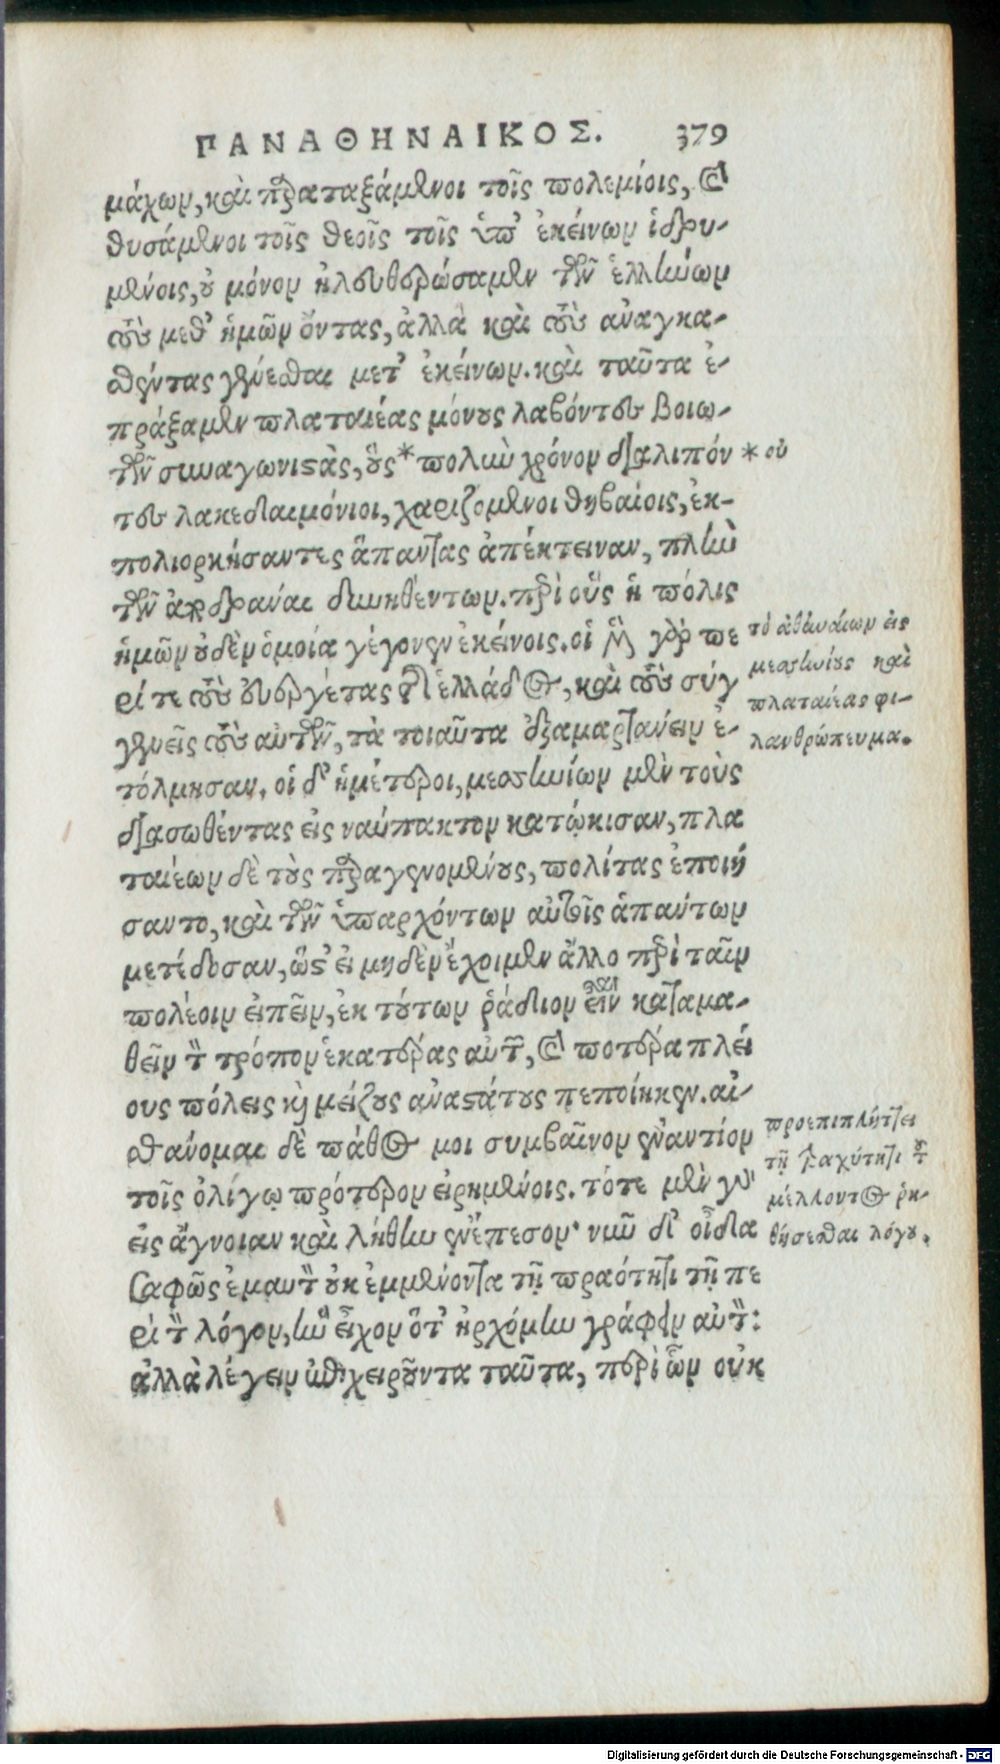 ΠΑΝΑΘΗΝΑΙΚΟΣ. 379
μάχων, καὶ παραταξάμενοι τοῖς πολεμίοις, καὶ
θυσάμενοι τοῖς θεοῖς τοῖς ὑπ' ἐκείνων ἱδρυ-
μένοις, οὐ μόνον ἠλευθερώσαμεν τῶν ἑλλήνων
τοὺς μεθ' ἡμῶν ὄντας, ἀλλὰ καὶ τοὺς ἀναγκα-
σθέντας γενέσθαι μετ' ἐκείνων. καὶ ταῦτα ἐ-
πράξαμεν πλαταιέας μόνους λαβόντες βοιω-
τῶν συναγωνιστὰς, οὓς * πολὺν χρόνον διαλιπόν * οὐ
τες λακεδαιμόνιοι, χαριζόμενοι θηβαίοις, ἐκ-
πολιορκήσαντες ἅπαντας ἀπέκτειναν, πλὴν
τῶν ἀποδρᾶναι δυνηθέντων. περὶ οὓς ἡ πόλις
ἡμῶν οὐδὲν ὁμοία γέγονεν ἐκείνοις. οἱ μὲν γὰρ πε
ρί τε τοὺς εὐεργέτας τῆς ἑλλάδος, καὶ τοὺς συγ
γενεῖς τοὺς αὐτῶν, τὰ τοιαῦτα ἐξαμαρτάνειν ἐ-
τόλμησαν. οἱ δ' ἡμέτεροι, μεσσηνίων μὲν τοὺς
διασωθέντας εἰς ναύπακτον κατῴκισαν, πλα
ταιέων δὲ τοὺς παραγενομένους, πολίτας ἐποιή
σαντο, καὶ τῶν ὑπαρχόντων αὐτοῖς ἁπάντων
μετέδοσαν, ὥστ' εἰ μηδὲν ἔχοιμεν ἄλλο περὶ ταῖν
πολέοιν εἰπεῖν, ἐκ τούτων ῥᾴδιον εἶναι καταμα-
θεῖν τὸν τρόπον ἑκατέρας αὐτῶν, καὶ ποτέρα πλεί
ους πόλεις καὶ μείζους ἀναστάτους πεποίηκεν. αἰ-
σθάνομαι δὲ πάθος μοι συμβαῖνον ἐναντίον
τοῖς ὀλίγῳ πρότερον εἰρημένοις. τότε μὲν γὰρ
εἰς ἄγνοιαν καὶ λήθην ἐνέπεσον· νῦν δ' οἶδα
σαφῶς ἐμαυτὸν οὐκ ἐμμένοντα τῇ πραότητι τῇ πε
ρὶ τὸν λόγον, ἣν εἶχον ὅτ' ἠρχόμην γράφειν αὐτὸν:
ἀλλὰ λέγειν ἐπιχειροῦντα ταῦτα, περὶ ὧν οὐκ
τὸ ἀθηναίων εἰς
μεσσηνίους καὶ
πλαταιέας φι-
λανθρώπευμα.
προεπιπλήττει
τῇ τραχύτητι τοῦ
μέλλοντος ῥη-
θήσεσθαι λόγου.
Digitalisierung gefördert durch die Deutsche Forschungsgemeinschaft - DFG